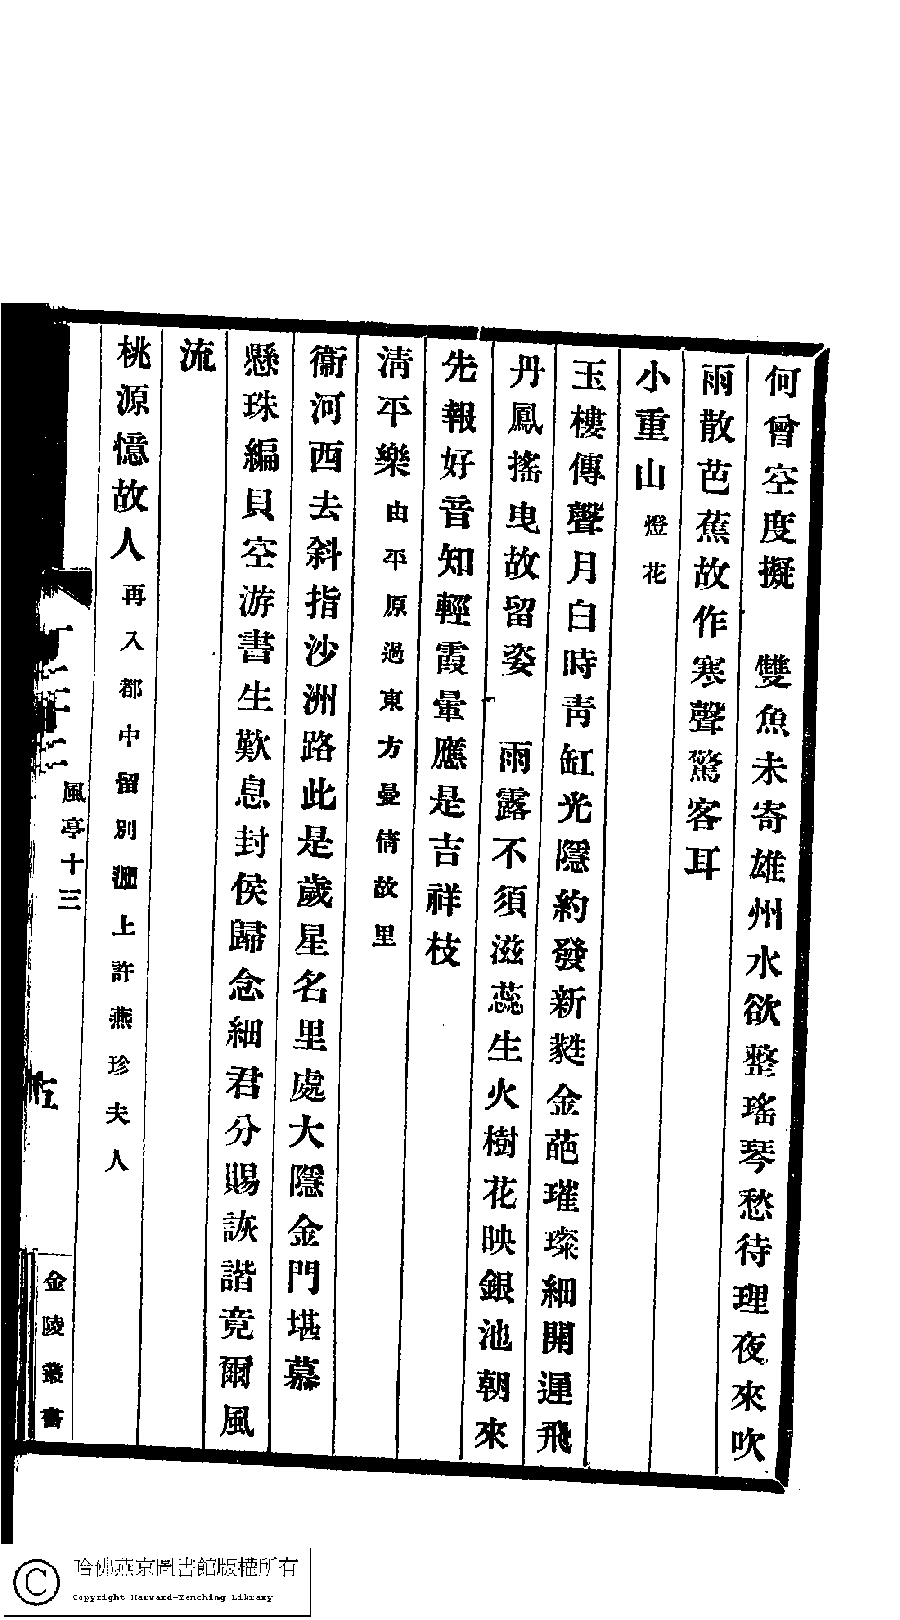 何曾空度擬　雙魚未寄雄州水欲整瑤琴愁待理夜來吹
雨散芭蕉故作寒聲驚客耳
小重山燈花
玉樓傳聲月白時青缸光隱約發新蕤金葩璀璨細開遲飛
丹鳳搖曳故留姿　雨露不須滋蕊生火樹花映銀池朝來
先報好音知輕霞暈應是吉祥枝
清平樂由平原過東方曼倩故里
衞河西去斜指沙洲路此是歲星名里處大隱金門堪慕
懸珠編貝空游書生歎息封侯歸念細君分賜詼諧竟爾風
流
桃源憶故人再入都中留別上許燕珍夫人
風亭十三
金陵叢書
哈佛燕京圖書館版權所有
Copyright Harvard-Yenching Library